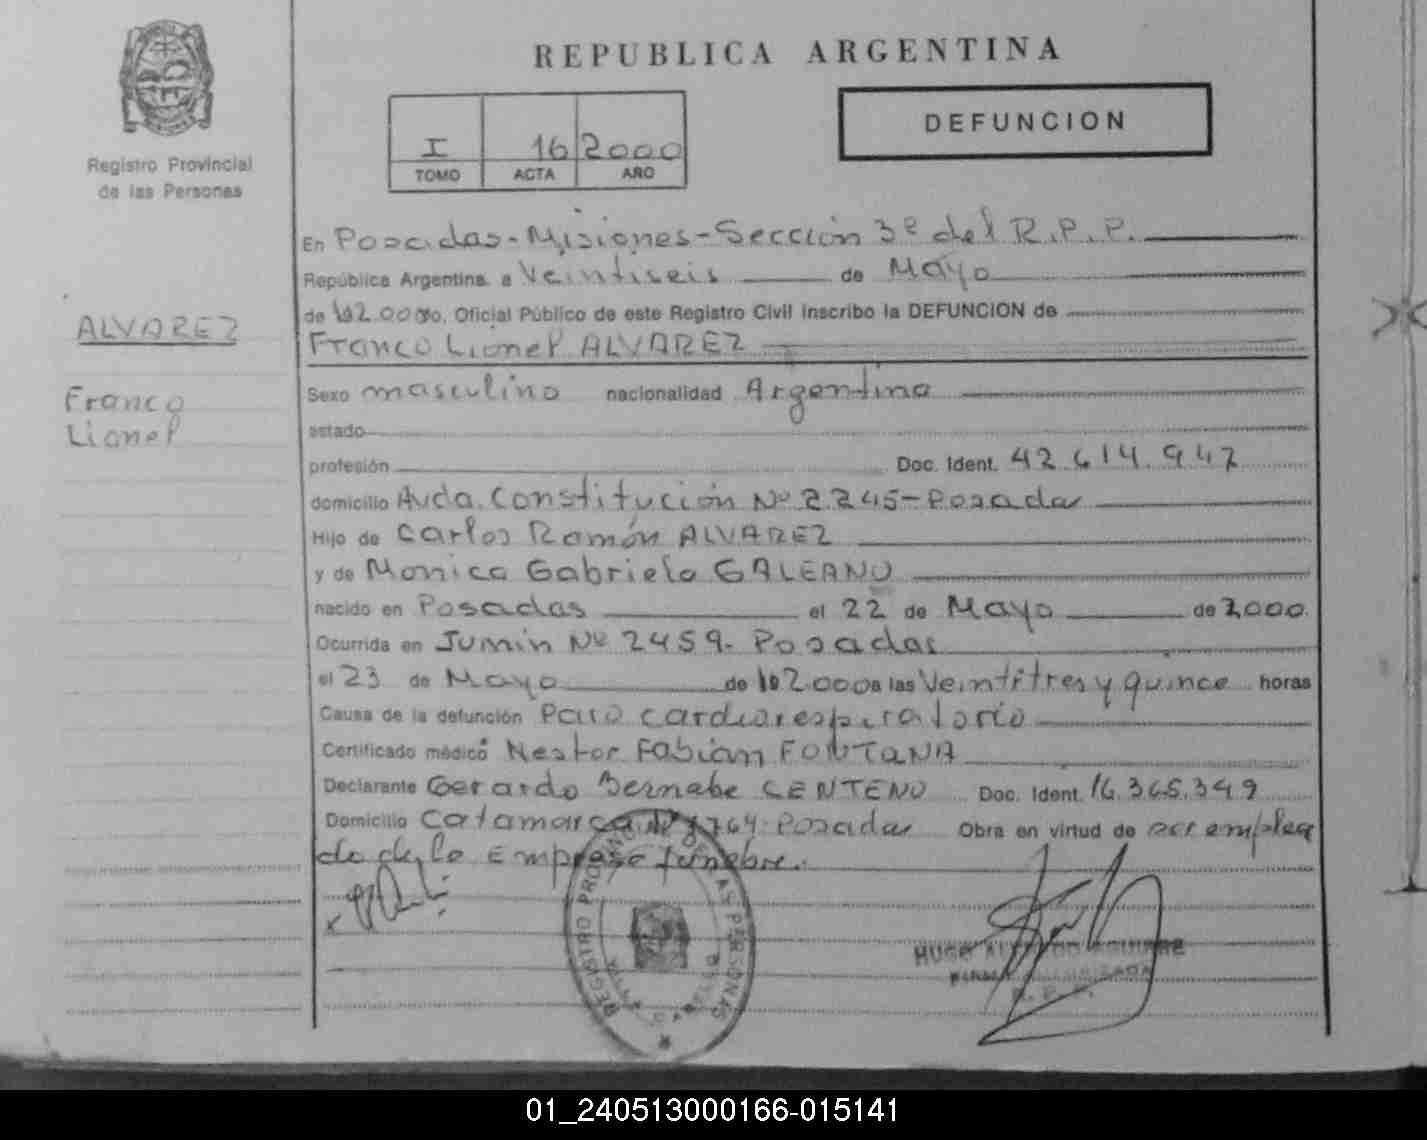 REPUBLICA ARGENTINA
DEFUNCION
I 16 2000
TOMO ACTA AÑO
Registro Provincial
de las Personas
ALVAREZ
Franco
Lionel
En Posadas-Misiones-Sección 3ª del R.P.P.
República Argentina, a Veintiseis de Mayo
de 2.000 yo, Oficial Público de este Registro Civil inscribo la DEFUNCION de
Franco Lionel ALVAREZ
Sexo masculino nacionalidad Argentina
estado
profesión Doc. Ident. 42.614.947
domicilio Avda. Constitución Nº 2.245-Posadas
Hijo de Carlos Ramón ALVAREZ
y de Monica Gabriela GALEANO
nacido en Posadas el 22 de Mayo de 2,000.
Ocurrida en Junín Nº 2459. Posadas
el 23 de Mayo de 2.000 a las Veintitres y quince horas
Causa de la defunción Paro cardiorespiratorio
Certificado médico Nestor Fabian FONTANA
Declarante Gerardo Bernabe CENTENO Doc. Ident. 16.365.349
Domicilio Catamarca Nº 1764-Posadas Obra en virtud de ser emplea
do de la Empresa fúnebre.
REGISTRO PROVINCIAL DE LAS PERSONAS
HUGO AGUIRRE
FIRMA AUTORIZADA
R. P. P.
01_240513000166-015141